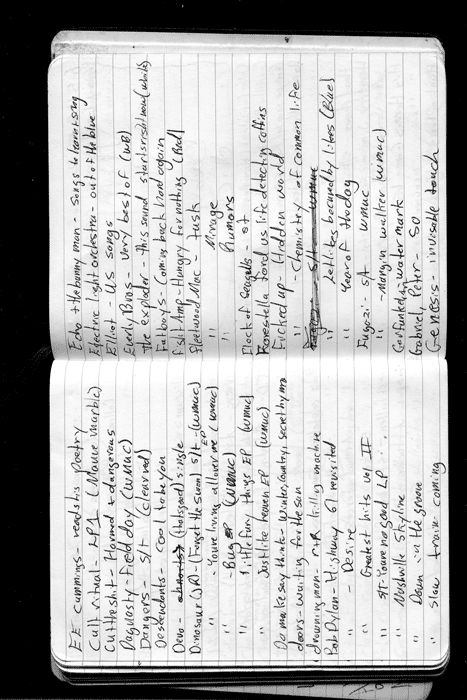 EE Cummings - reads his poetry
Cult ritual - LP1 (Mauve marble)
Cultleshit - Harmed + dangerous
Dagulesty - field day (WMUC)
Dangers - S/t (clear red)
Descendants - cool to be you
Devo - (that's good) single
Dinosaur JR - (Forget the swan) S/t - (WMUC)
" - You're living all over me (WMUC)
" - Bug (WMUC)
" little fury things EP (WMUC)
" Just like heaven EP (WMUC)
Do make say think - Winter, country, secret hymn
doors - waiting for the sun
drowning man - drilling machine
Bob Dylan - Highway 61 revisited
" Desire
" Greatest hits vol II
" S/t - You're no good LP
" Nashville Skyline
" Down in the groove
" Slow train coming
Echo + the bunny men - songs to learn + sing
Electric light orchestra - out of the blue
Elliot - US songs
Everly Bros - Very best of (WB)
the exploder - This sound starts right now (white)
Fallboys - Coming back hard again
Filth Amp - Hungry for nothing (Red)
Fleetwood Mac - tusk
" Mirage
" Rumors
Flock of Seagulls - St
Forestella fond us life detecting coffins
Fucked up - Hidden world
" - Chemistry of common life
" Year of the dog
Fugazi - s/t WMUC
" - Margin walker (WMUC)
Garfunkel - watermark
Gabriel, Peter - So
Genesis - invisable touch